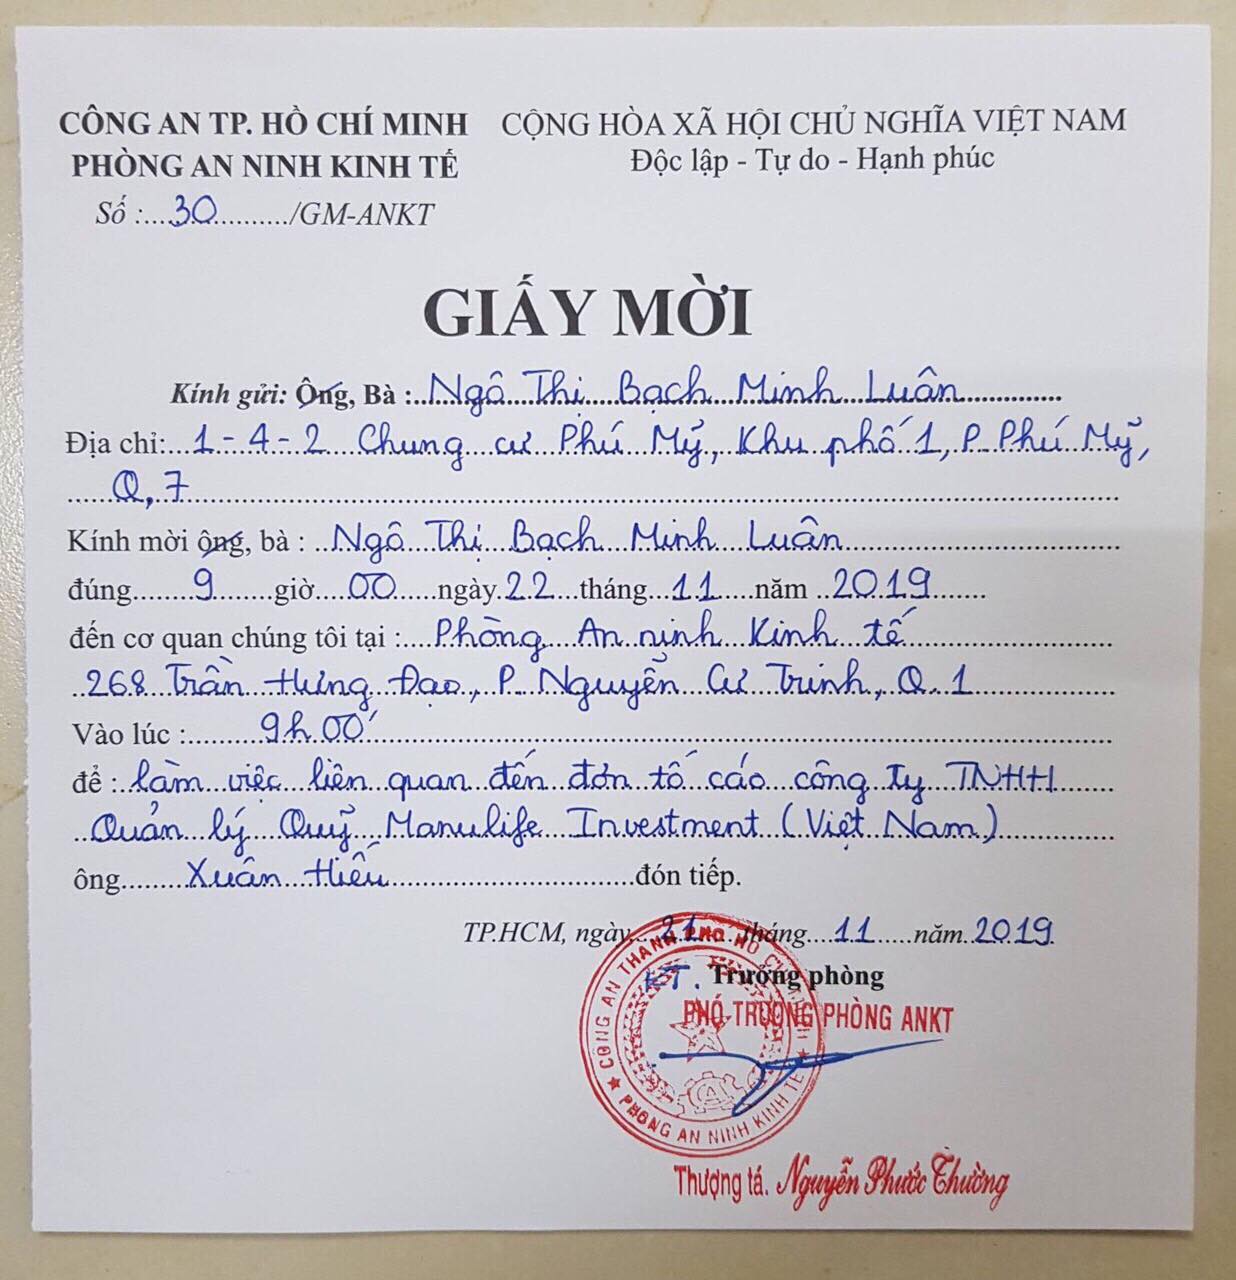 CÔNG AN TP. HỒ CHÍ MINH
PHÒNG AN NINH KINH TẾ
Số :....30.........../GM-ANKT
CỘNG HÒA XÃ HỘI CHỦ NGHĨA VIỆT NAM
Độc lập - Tự do - Hạnh phúc
GIẤY MỜI
Kính gửi: Ông, Bà :..Ngô Thị Bạch Minh Luân..............
Địa chỉ:...1-4-2 Chung cư Phú Mỹ, Khu phố 1, P. Phú Mỹ,
......Q,7......................
Kính mời ông, bà : ..Ngô Thị Bạch Minh Luân..............
đúng........9.......giờ....00......ngày.22....tháng...11.....năm ..2019........
đến cơ quan chúng tôi tại :....Phòng An ninh Kinh tế..............
..268 Trần Hưng Đạo, P. Nguyễn Cư Trinh, Q.1..............
Vào lúc :..........9h00'..............
để : làm việc liên quan đến đơn tố cáo công ty TNHH........
..Quản lý Quỹ Manulife Investment (Việt Nam)..............
ông.........Xuân Hiếu..............đón tiếp.
TP.HCM, ngày...21...tháng....11......năm..2019
KT. Trưởng phòng
PHÓ TRƯỞNG PHÒNG ANKT
CÔNG AN THÀNH PHỐ HỒ CHÍ MINH
★ PHÒNG AN NINH KINH TẾ ★
Thượng tá. Nguyễn Phước Thường